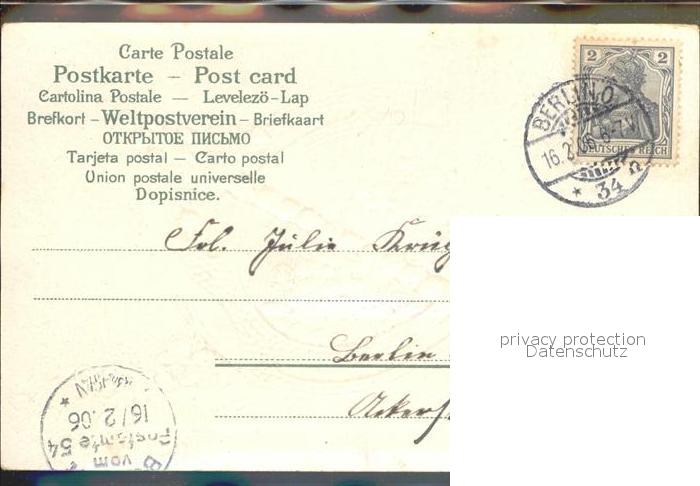 Carte Postale
Postkarte – Post card
Cartolina Postale — Levelezö-Lap
Brefkort – Weltpostverein – Briefkaart
ОТКРЫТОЕ ПИСЬМО
Tarjeta postal — Carto postal
Union postale universelle
Dopisnice.
2 2
DEUTSCHES REICH
BERLIN, O.
16.2.06 6-7N
* 34 n
Frl. Julie Krüg
Berlin
Ackers
privacy protection
Datenschutz
16/2.06
Postamte 54
vom